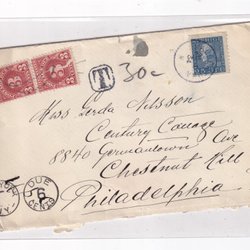 T 30c
Miss Gerda Nilsson
Century Cottage
8840 Germantown Ave
Chestnut Hill
Philadelphia
DUE
6
CENTS